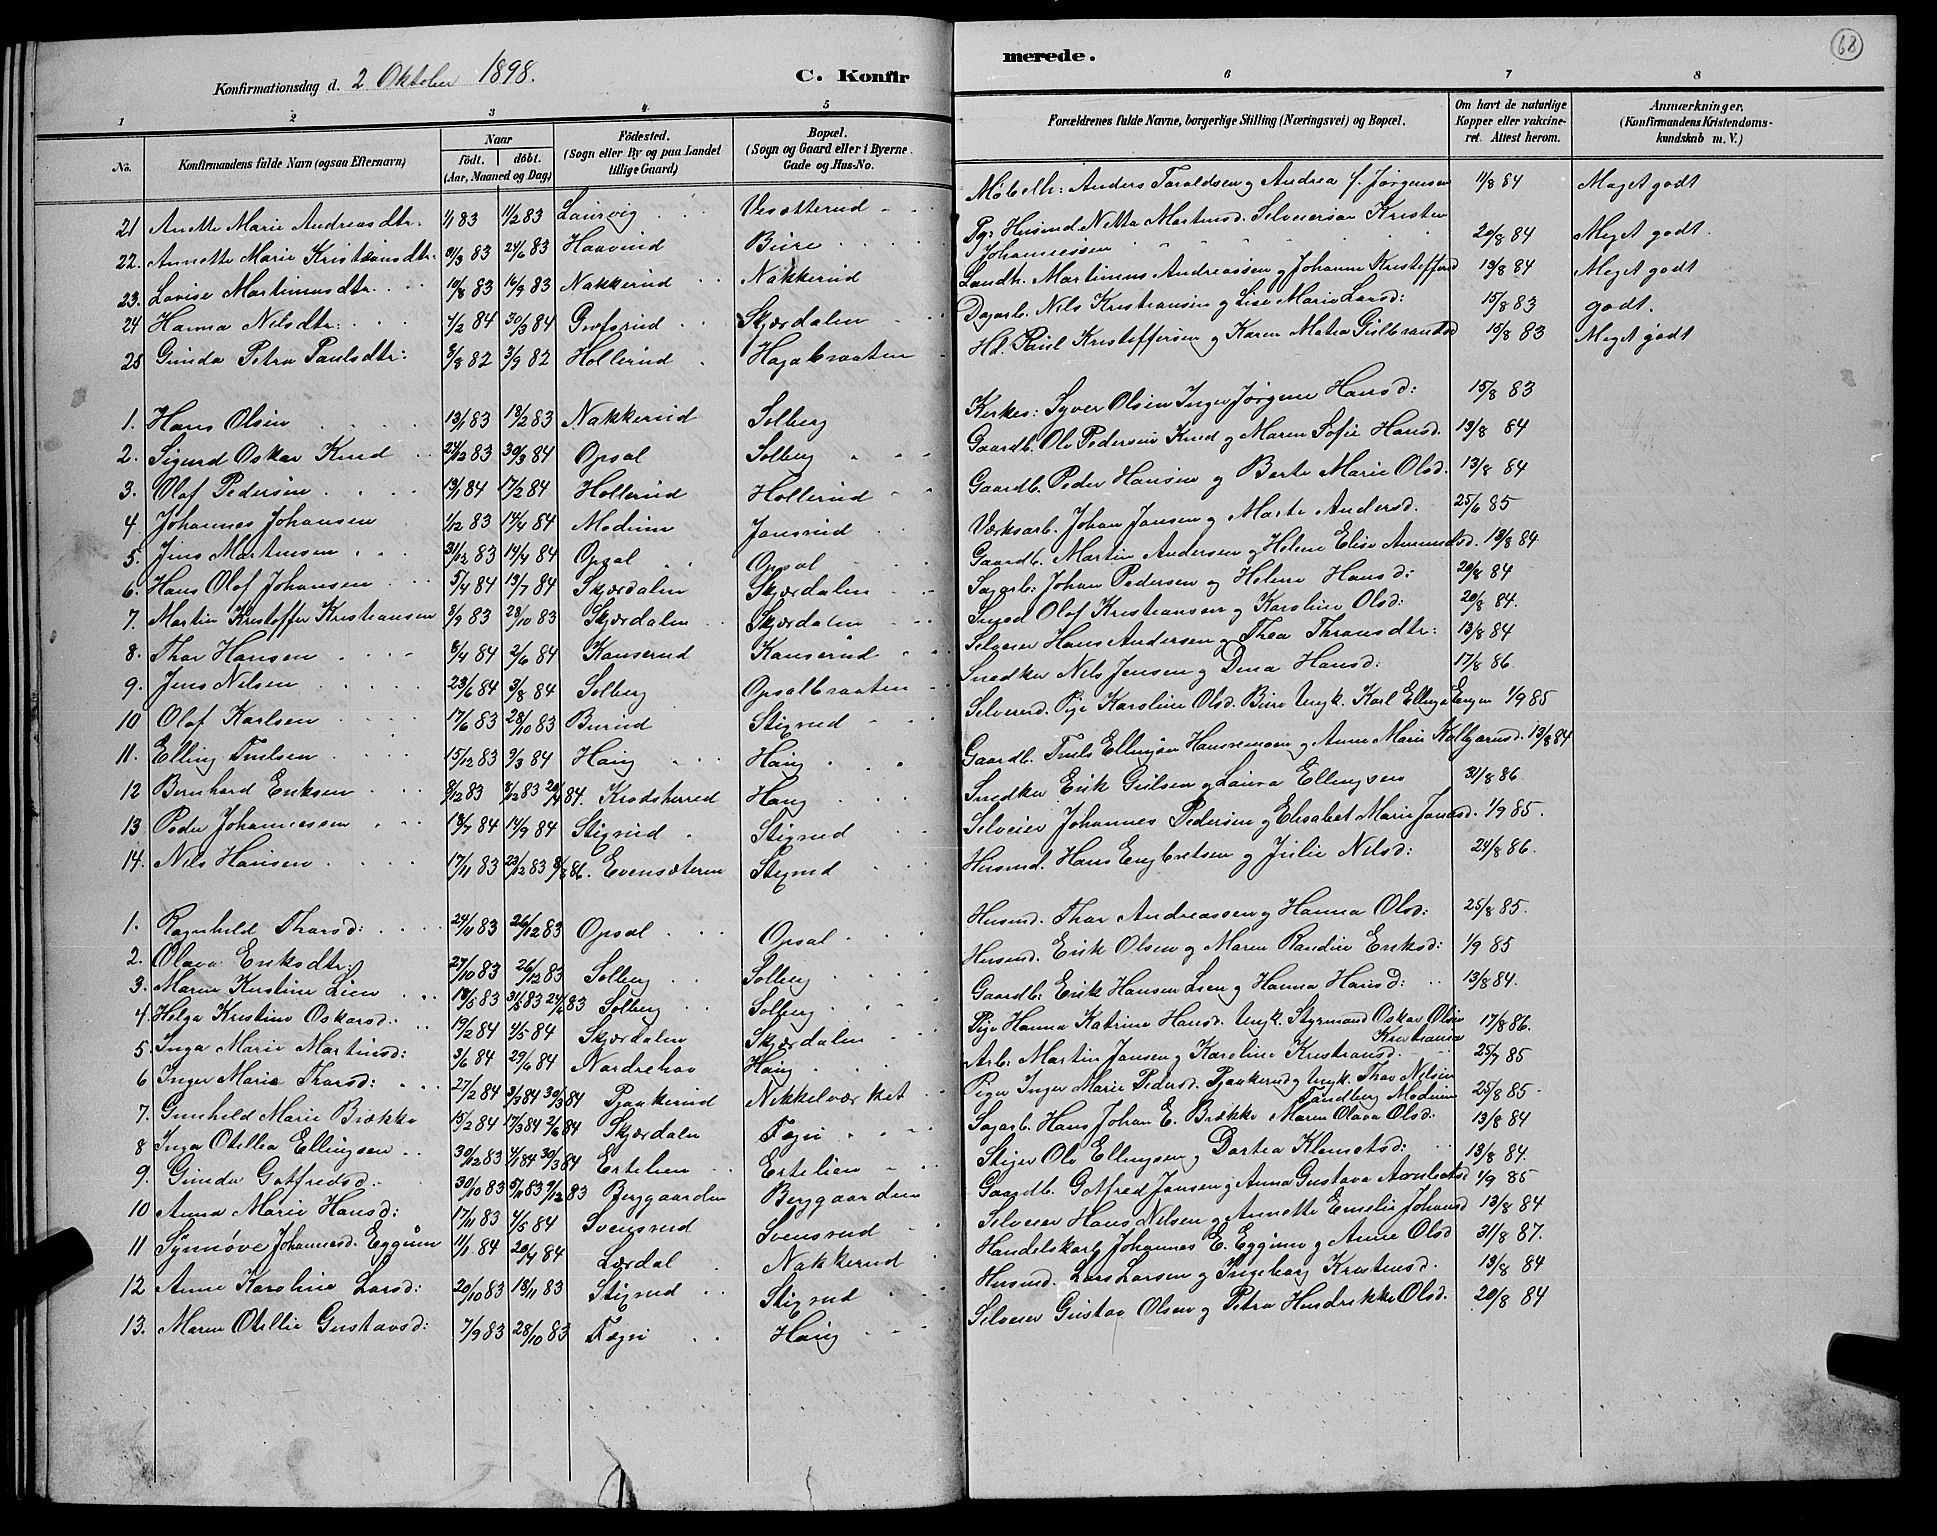 68
Konfirmationsdag d. 2 Oktober 1898. C. Konfir merede.
1 2 3 4 5 6 7 8
No. Konfirmandens fulde Navn (ogsaa Efternavn) Naar født. døbt. (Aar, Maaned og Dag) Fødested. (Sogn eller By og paa Landet tillige Gaard) Bopæl. (Sogn og Gaard eller i Byerne Gade og Hus-No. Forældrenes fulde Navne, borgerlige Stilling (Næringsvei) og Bopæl. Om havt de naturlige Kopper eller vakcineret. Attest herom. Anmærkninger, (Konfirmandens Kristendomskundskab m. V.)
21 Anette Marie Andreasdtr. 1/1 83 11/2 83 Laurvig Vesætterud Møbelh: Anders Taraldsen og Andrea f. Jørgensen 11/8 84 Meget godt
22. Annette Marie Kristiansdtr. 24/6 83 Haavind Bure Pg: Husmd Netta Martinsd. Selveiersøn Kristen Johannessen 20/8 84 Meget godt.
23. Lovise Martinusdtr. 10/8 83 16/9 83 Nakkerud Nakkerud Landh. Martinus Andreassen og Johanne Kristoffersd 13/8 84 Meget godt
24 Hanna Nilsdtr: 4/2 84 30/3 84 Grøfsrud Skjærdalen Dagarb. Nils Kristiansen og Lise Marie Larsd: 15/8 83 godt.
25 Gunda Petra Paulsdtr: 3/9 82 Hollerud Hagabraaten Hd. Paul Kristoffersen og Karen Matea Gulbrandsd 15/8 83 Meget godt
1. Hans Olsen 13/1 83 18/2 83 Nakkerud Solberg Kirkes: Syver Olsen Inger Jørgine Hansd: 15/8 83
2. Sigurd Oskar Knud 24/12 83 30/3 84 Opsal Solberg Gaardb. Ole Pedersen Knud og Maren Sofie Hansd. 13/8 84
3. Olaf Pedersen 13/1 84 17/2 84 Hollerud Hollerud Gaardb. Peder Hansen og Berte Marie Olsd. 13/8 84
4 Johannes Johansen 1/12 83 14/4 84 Modum Jonsrud Værksarb. Johan Jansen og Marte Andersd. 25/6 85
5. Jens Martinsen 31/12 83 14/4 84 Opsal Opsal Gaardb. Martin Andersen og Helene Elise Amundsd. 13/8 84
6. Hans Olaf Johansen 5/4 84 13/7 84 Skjærdalen Skjærdalen Sagarb: Johan Pedersen og Helene Hansd: 20/8 84
7. Martin Kristoffer Kristiansen 3/9 83 28/10 83 Skjærdalen Skjærdalen Smed Olaf Kristiansen og Karoline Olsd: 20/8 84.
8. Thor Hansen 6/4 84 2/6 84 Kanserud Kanserud Selveier Hans Andersen og Thea Thronsdtr: 13/8 84
9. Jens Nilsen 23/6 84 3/8 84 Solberg Opsalbraaten Snedker Nils Jensen og Dina Hansd: 17/8 86.
10 Olaf Karlsen 17/6 83 28/10 83 Burud Stigrud Selveierd. Pige Karoline Olsd. Bure Ungk. Karl Ellingsen 1/9 85
11. Elling Truelsen 15/12 83 9/3 84 Haug Haug Gaardb. Truls Ellingsen Hansremoen og Anne Marie Kolbjørnsd. 13/8 84
12 Bernhard Eriksen 8/12 83 8/12 83 20/4 84. Krødsherred Haug Snedker Erik Gulsen og Laura Ellingsen 31/8 86.
13 Peder Johannessen 18/7 84 14/9 84 Stigrud Stigrud Selveier Johannes Pedersen og Elisabet Marie Jansd. 1/9 85.
14. Nils Hansen 17/11 83 23/12 83 8/8 86. Evensæteren Stigrud Husmd. Hans Engbretsen og Julie Nilsd: 24/8 86.
1. Ragnhild Thorsd: 24/11 83 26/12 83 Opsal Opsal Husmd. Thor Andreassen og Hanna Olsd: 25/8 85.
2. Olava Eriksdtr: 27/10 83 26/12 83 Solberg Solberg Husmd. Erik Olsen og Maren Randine Eriksd: 1/9 85
3. Maren Kirstine Lien 31/5 83 Solberg Solberg Gaardb: Erik Hansen Lien og Hanna Hansd: 13/8 84.
4. Helga Kristine Oskarsd: 19/2 84 4/5 84 Skjærdalen Skjærdalen Pige Hanna Katrine Hansd. Ungk. Styrmand Oskar Olsen Kristiania 17/8 86.
5. Inga Marie Martinsd: 3/6 84 29/6 84 Norderhov Haug Arb: Martin Jansen og Karoline Kristiansd. 25/7 85
6 Inger Marie Thorsd: 27/2 84 3/3 84 30/3 84 Pjaakerud Nikkelværket Pige Inger Marie Pedersd. Pjaakerud og Ungk. Thor Nilsen Tandberg Modum 25/8 85.
7. Gunhild Marie Brække 15/2 84 17/3 84 2/6 84 Skjærdalen Fægri Sagarb. Hans Johan E. Brække Maren Olava Olsd: 13/8 84
8 Inga Otilla Ellingsen 30/12 83 4/1 84 30/3 84 Ertelien Ertelien Stiger Ole Ellingsen og Dortea Klemetsd: 13/8 84.
9. Gunda Gotfredsd: 30/10 83 5/11 83 9/12 83 Berggaarden Berggaarden Gaardb. Gotfred Jansen og Anna Gustava 1/9 85
10 Anna Marie Hansd: 17/11 83 4/5 84 Svensrud Svensrud Selveier Hans Nilsen og Annette Emelie Johansd 13/8 84
11 Synnøve Johannesd. Eggum 11/1 84 20/4 84 Lærdal Nakkerud Handelskarl Johannes E. Eggum og Anne Olsd 31/8 87.
12 Anne Karoline Larsd: 20/10 83 18/11 83 Stigrud Stigrud Husmd. Lars Larsen og Ingeborg Kristensd. 13/8 84
13. Maren Otillie Gustavsd: 7/9 83 28/10 83 Fægri Haug Selveier Gustav Olsen og Petra Hendrikke Olsd. 20/8 84